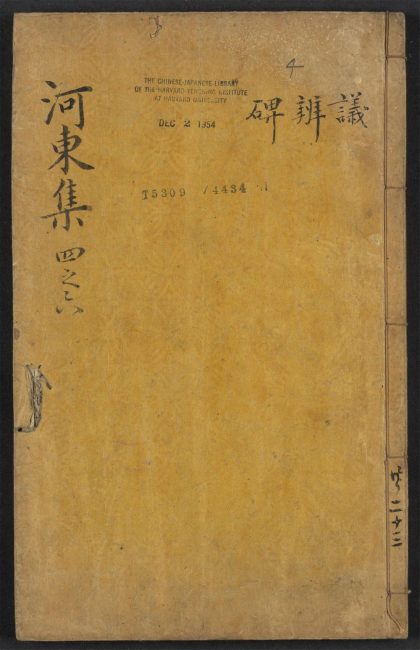 4
THE CHINESE-JAPANESE LIBRARY
OF THE HARVARD-YENCHING INSTITUTE
AT HARVARD UNIVERSITY
DEC 2 1954
議辨碑
河東集
四之六
T5309 /4434
二十三